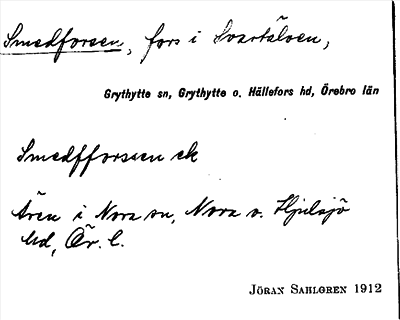 Smedforsen, fors i Svartälven,
Grythytte sn, Grythytte o. Hällefors hd, Örebro län
Smedfforssen ek
i Nora sn, Nora o. Hjulsjö
hd, Ör. l.
JÖRAN SAHLGREN 1912